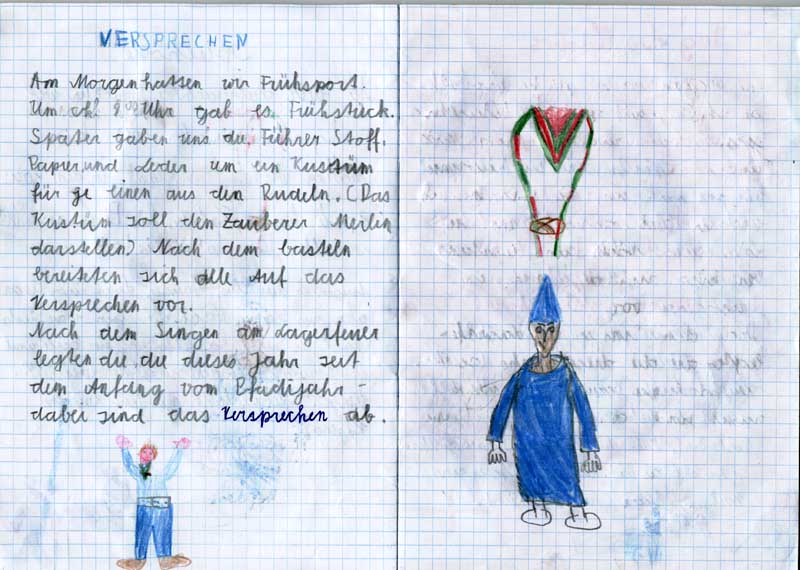 VERSPRECHEN
Am Morgen hatten wir Frühsport.
Um ch! 9⁰⁰ Uhr gab es Frühstück.
Später gaben uns die Führer Stoff,
Papier, und Leder um ein Kustüm
für je einen aus den Rudeln. (Das
Kustüm soll den Zauberer Merlin
darstellen) Nach dem basteln
bereiteten sich alle Auf das
Versprechen vor.
Nach dem Singen am Lagerfeuer
legten die, die dieses Jahr seit
dem Anfang vom Pfadijahr -
dabei sind das Versprechen ab.